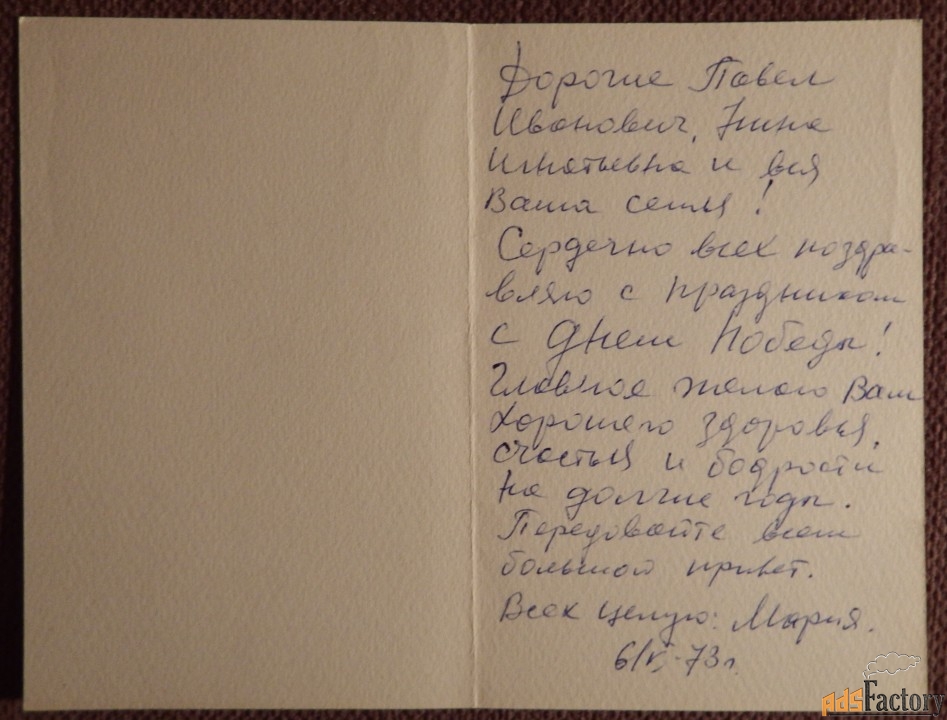 Дорогие Павел
Иванович, Нина
Игнатьевна и вся
Ваша семья!
Сердечно всех поздра-
вляю с праздником
с Днем Победы!
Главное желаю Вам
хорошего здоровья,
счастья и бодрости
на долгие годы.
Передавайте всем
большой привет.
Всех целую: Мария.
6/V-73г.
AdsFactory